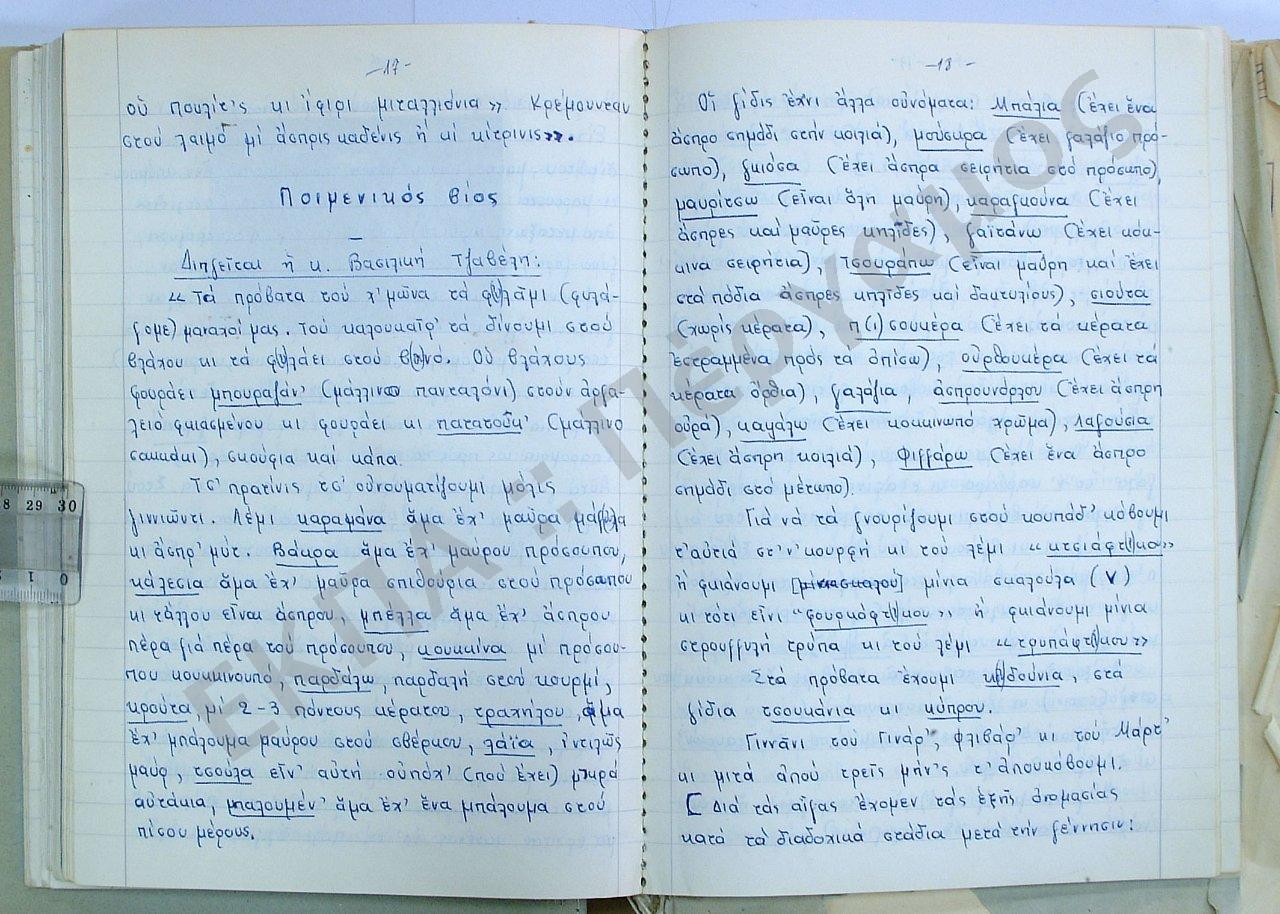 -17-
οὐ πουλίτ'ς κι ἰφιρι μιταλλιόνια» Κρέμουνταν
στοὺ λαιμὸ μὶ ἄσπρις καδένις ἢ κὶ κίτρινις».
Ποιμενικός βίος
Διηγεῖται ἡ κ. Βασιλική Τζαβέλη:
«Τὰ πρόβατα τοὺ χ'μῶνα τὰ φ(υ)λᾶμι (φυλά-
γομε) μαναχοί μας. Τοὺ καλουκαίρ' τὰ δίνουμι στοὺ
βλάχου κι τὰ φ(υ)λάει στοὺ β(ου)νό. Οὑ βλάχους
φουράει μπουραζάν' (μάλλινο πανταλόνι) στοὺν ἀργα-
λειό φκιασμένου κι φουράει κι πατατούκ' (μάλλινο
σακάκι), σκούφια καὶ κάπα.
Τσ' πρατίνις τσ' οὐνουματίζουμι μόλις
γιννιῶντι. Λέμι καραμάνα ἅμα ἔχ' μαῦρα μάγ(ου)λα
κι ἄσπρ' μύτ. Βάκρα ἅμα ἔχ' μαύρου πρόσουπου,
κάλεσια ἅμα ἔχ' μαῦρα σπιθούρια στοὺ πρόσωπου
κι τἄλλου εἶναι ἄσπρου, μπέλλα ἅμα ἔχ' ἄσπρου
πέρα γιὰ πέρα τοὺ πρόσουπου, κουκκίνα μὶ πρόσου-
που κουκκινουπό, παρδάλω, παρδαλή στοὺ κουρμί,
κρούτα, μὶ 2-3 πόντους κέρατου, τραχήλου, ἅμα
ἔχ' μπάλουμα μαύρου στοὺ σβέρκου, λάϊα, ἰντιλῶς
μαύρ', τσούλα εἶν' αὐτή οὑπόχ' (ποὺ ἔχει) μικρά
αὐτάκια, μπαλουμέν' ἅμα ἔχ' ἕνα μπάλουμα στοὺ
πίσου μέρους.
-18-
Οἱ γίδις ἔχνι ἄλλα οὐνόματα: Μπάλια (ἔχει ἕνα
ἄσπρο σημάδι στὴν κοιλιά), μούσκρα (ἔχει γαλάζιο πρό-
σωπο), γκιόσα (ἔχει ἄσπρα σειρήτια στὸ πρόσωπο),
μαυρίτσω (εἶναι ὅλη μαύρη) καραγκούνα (ἔχει
ἄσπρες καὶ μαῦρες κηλῖδες), γαϊτάνω (ἔχει κόκ-
κινα σειρήτια), Τσουράπω (εἶναι μαύρη καὶ ἔχει
στὰ πόδια ἄσπρες κηλῖδες καὶ δακτυλίους), σιούτα
(χωρὶς κέρατα), π(ι)σουκέρα (ἔχει τὰ κέρατα
ἐστραμμένα πρὸς τὰ ὀπίσω), οὐρθουκέρα (ἔχει τὰ
κέρατα ὄρθια), γαλάζια, ἀσπρουνόρλου (ἔχει ἄσπρη
οὐρά), καψάλω (ἔχει κοκκινωπό χρῶμα), λαγούσια
(ἔχει ἄσπρη κοιλιά), Φιγγάρω (ἔχει ἕνα ἄσπρο
σημάδι στὸ μέτωπο).
Γιὰ νὰ τὰ γνουρίζουμι στοὺ κουπάδ' κόβουμι
τ'αὐτιά στ'ν'κουρφή κι τοὺ λέμι «κτσιάφτ(ι)κο»
ἢ φκιάνουμι μίνια σκαλούλα (V)
κι τότι εἶνι "φουρκόφτ(ι)κου» ἢ φκιάνουμι μίνια
στρουγγυλή τρύπα κι τοὺ λέμι «τρυπάφτ(ι)κου»
Στὰ πρόβατα ἔχουμι κ(ου)δούνια, στὰ
γίδια τσουκάνια κι κύπρου.
Γιννᾶνι τοὺ Γινάρ', Φλιβάρ' κι τοὺ Μάρτ'
κι μιτά ἀποὺ τρεῖς μήν'ς τ'ἀπουκόβουμι.
[Διὰ τὰς αἶγας ἔχομεν τὰς ἑξῆς ὀνομασίας
κατὰ τὰ διαδοχικά στάδια μετὰ τὴν γέννησιν:
28 29 30
1 0
ΕΚΠΑ :: ΠΕΡΓΑΜΟΣ